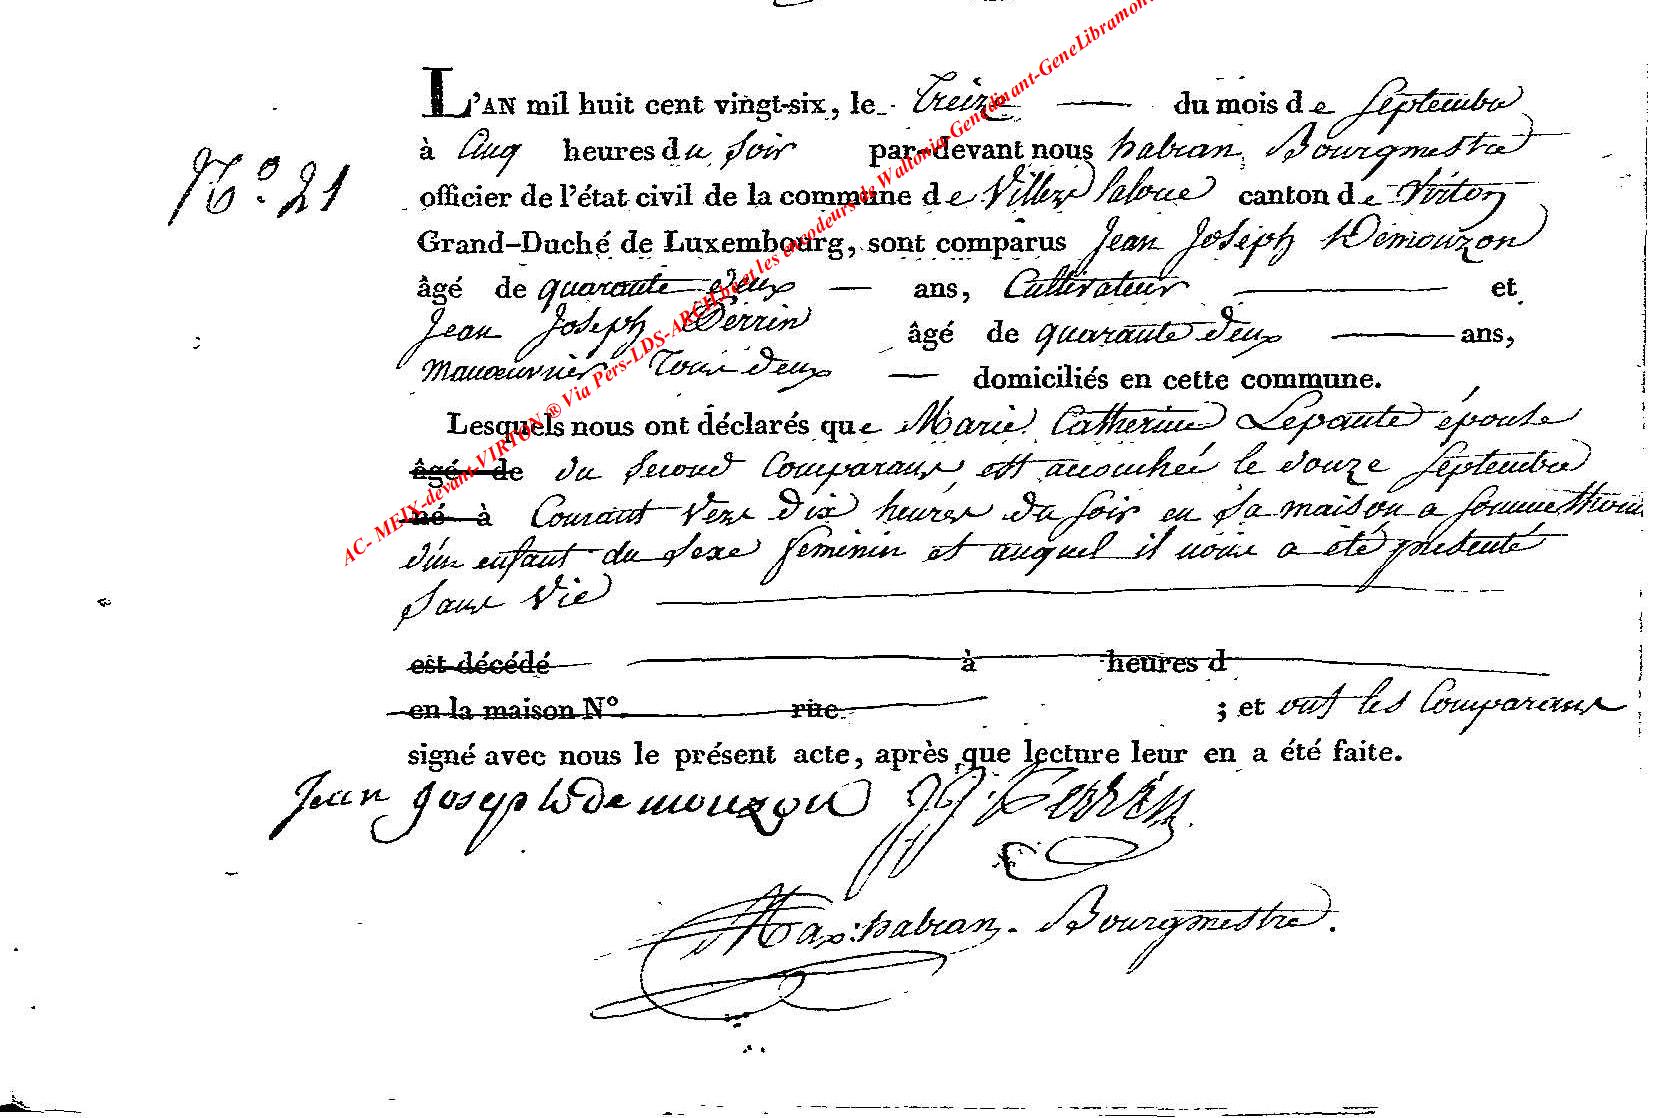 L'AN mil huit cent vingt-six, le Treize du mois de Septembre
N.º 21
à Cinq heures du Soir par-devant nous habran Bourgmestre
officier de l'état civil de la commune de Villers laloue canton de Virton
Grand-Duché de Luxembourg, sont comparus Jean Joseph Demouzon
âgé de quarante deux ans, Cultivateur et
Jean Joseph Perrin âgé de quarante deux ans,
manœuvrier Tous deux domiciliés en cette commune.
Lesquels nous ont déclarés que Marie Catherine Lepante épouse
âgé de du Second Comparans, est accouchée le douze Septembre
né à Courant vers dix heures du Soir en sa maison a Sommethonne
d'un enfant du Sexe feminin et auquel il nous a été présenté
Sans Vie
est décédé à heures d
en la maison Nº. rue ; et ont les Comparans
signé avec nous le présent acte, après que lecture leur en a été faite.
Jean Joseph demouzon JJ. Perrin
Max: habran. Bourgmestre.
AC- MEIX-devant-VIRTON ® Via Pers-LDS-ARCH.be et les encodeurs de Wallonia Genedinant-GeneLibramont